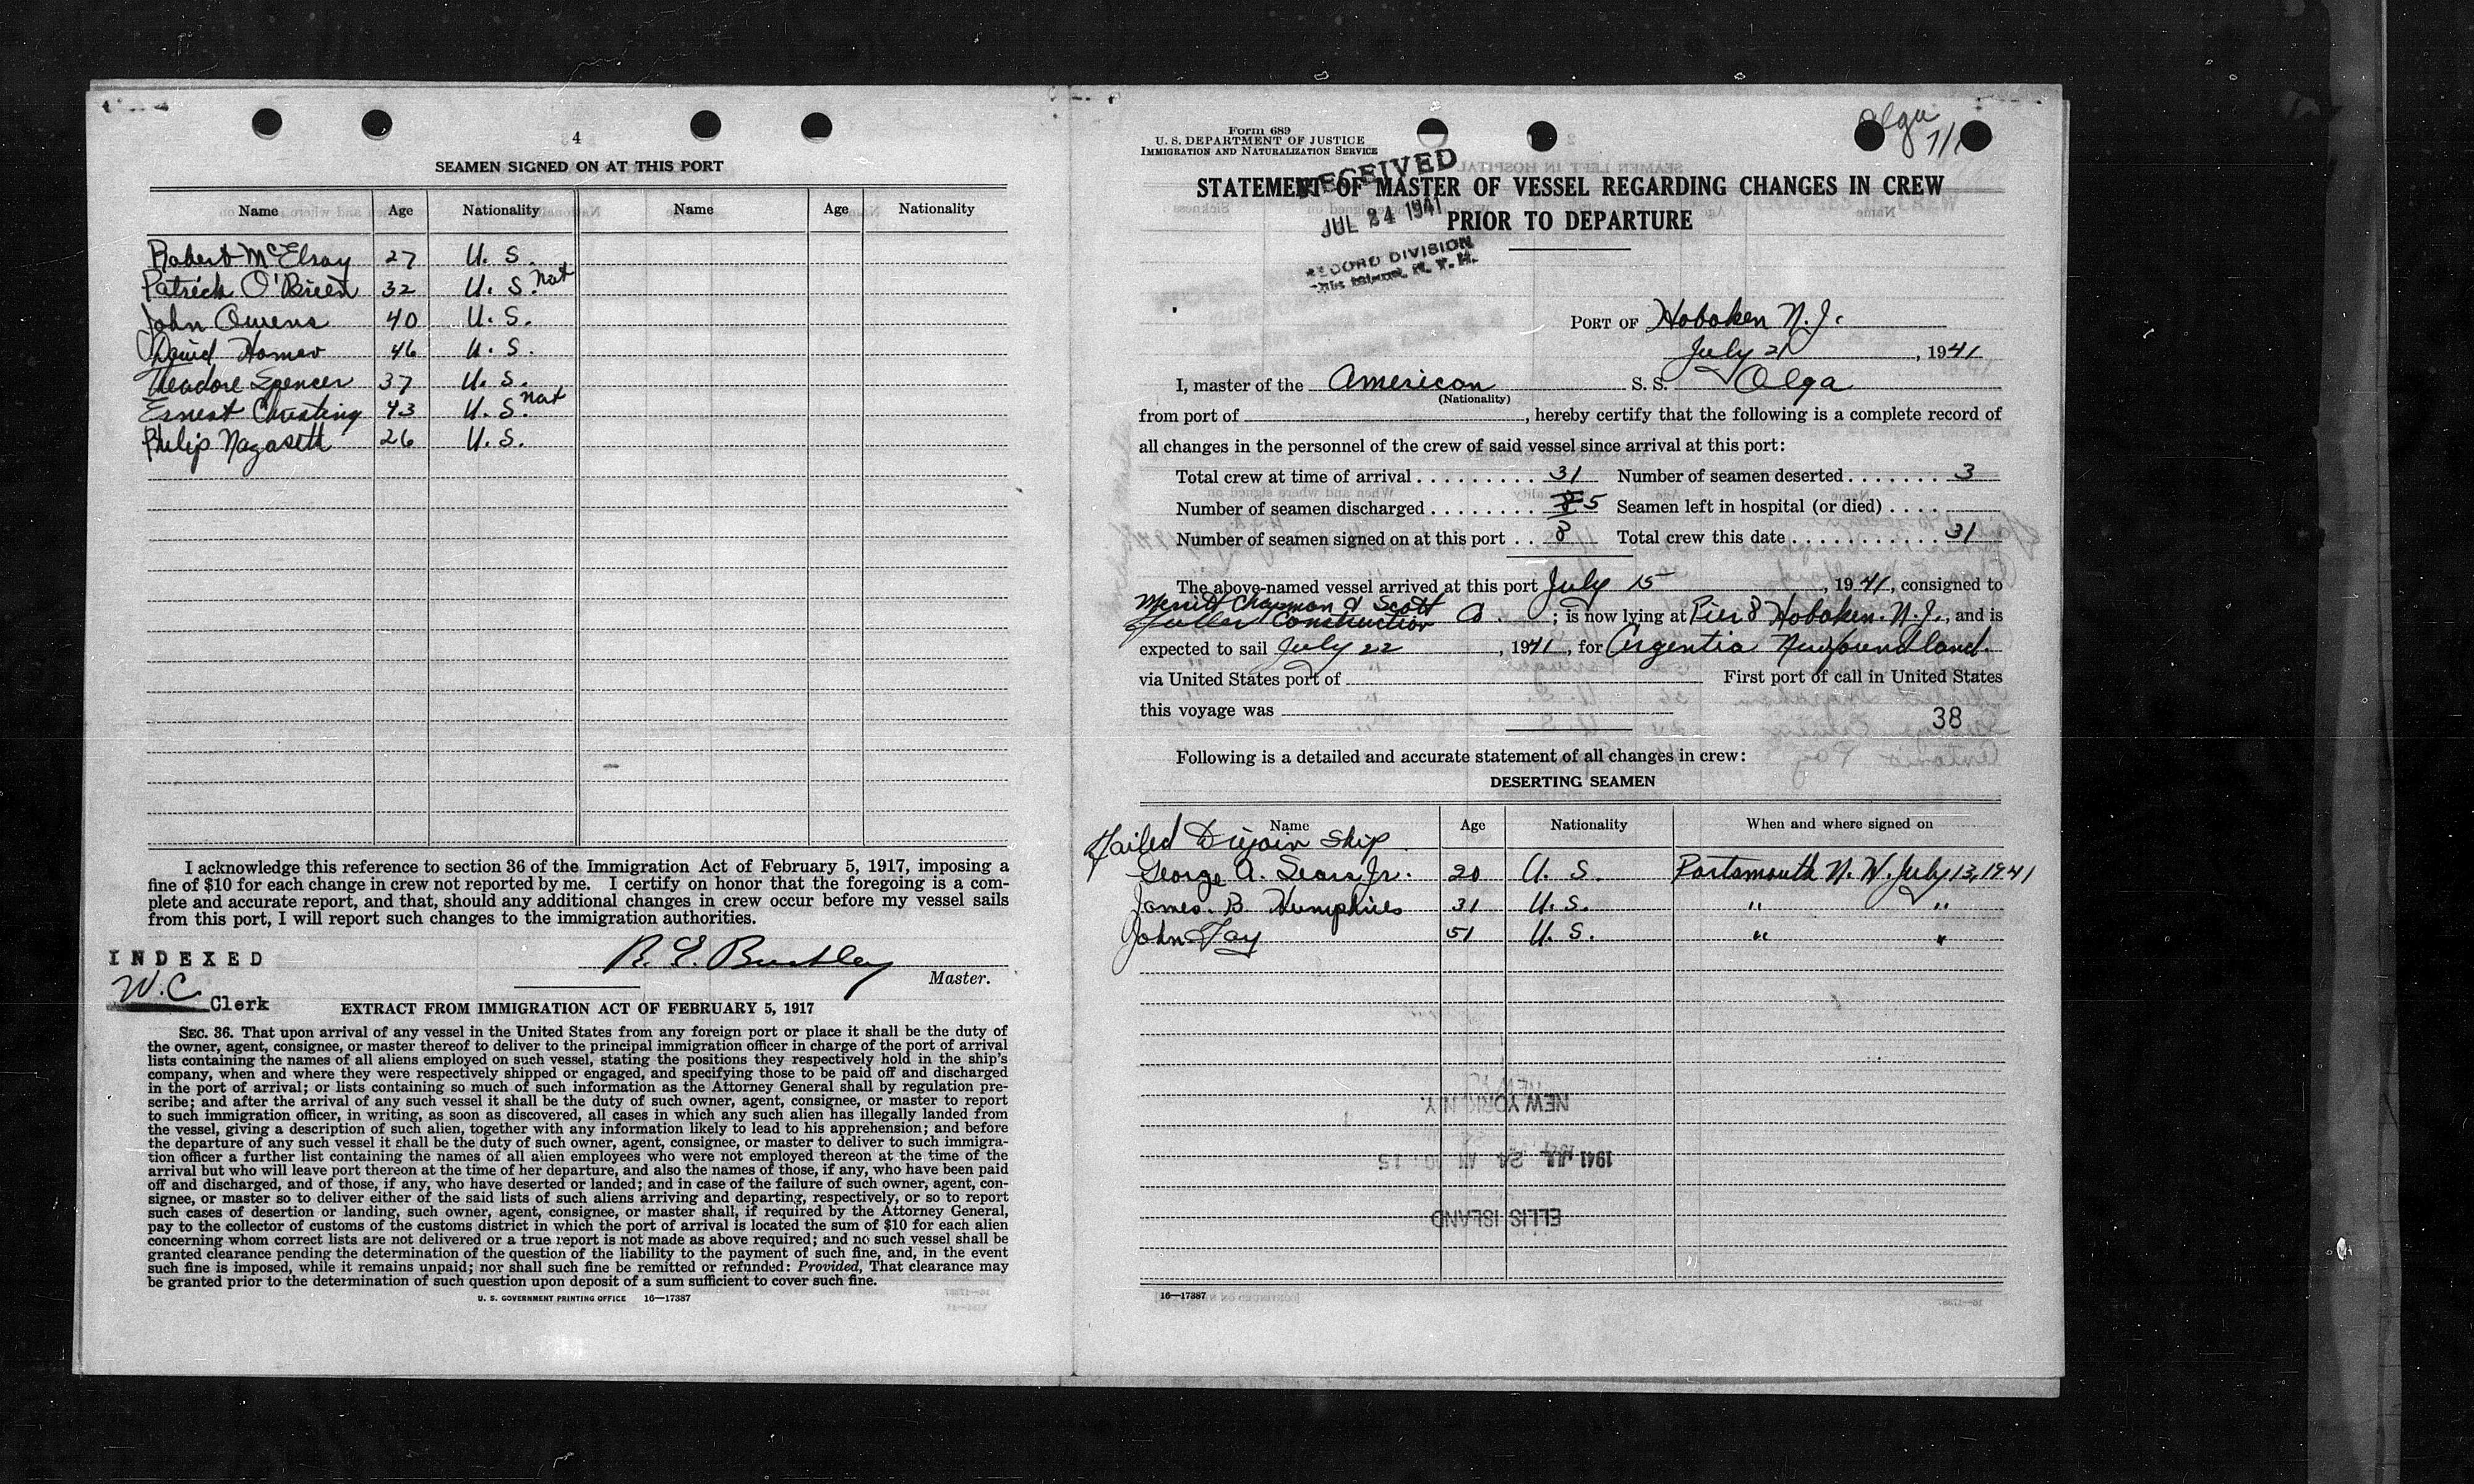 4
SEAMEN SIGNED ON AT THIS PORT
Name Age Nationality Name Age Nationality
Robert McElroy 27 U. S.
Patrick O'Brien 32 U. S. Nat
John Owens 40 U. S.
David Homer 46 U. S.
Theadore Spencer 37 U. S.
Ernest Christing 43 U. S. nat
Philip 26 U. S.
I acknowledge this reference to section 36 of the Immigration Act of February 5, 1917, imposing a
fine of $10 for each change in crew not reported by me. I certify on honor that the foregoing is a com-
plete and accurate report, and that, should any additional changes in crew occur before my vessel sails
from this port, I will report such changes to the immigration authorities.
INDEXED
R. E.
Master.
W.C. Clerk
EXTRACT FROM IMMIGRATION ACT OF FEBRUARY 5, 1917
SEC. 36. That upon arrival of any vessel in the United States from any foreign port or place it shall be the duty of
the owner, agent, consignee, or master thereof to deliver to the principal immigration officer in charge of the port of arrival
lists containing the names of all aliens employed on such vessel, stating the positions they respectively hold in the ship's
company, when and where they were respectively shipped or engaged, and specifying those to be paid off and discharged
in the port of arrival; or lists containing so much of such information as the Attorney General shall by regulation pre-
scribe; and after the arrival of any such vessel it shall be the duty of such owner, agent, consignee, or master to report
to such immigration officer, in writing, as soon as discovered, all cases in which any such alien has illegally landed from
the vessel, giving a description of such alien, together with any information likely to lead to his apprehension; and before
the departure of any such vessel it shall be the duty of such owner, agent, consignee, or master to deliver to such immigra-
tion officer a further list containing the names of all alien employees who were not employed thereon at the time of the
arrival but who will leave port thereon at the time of her departure, and also the names of those, if any, who have been paid
off and discharged, and of those, if any, who have deserted or landed; and in case of the failure of such owner, agent, con-
signee, or master so to deliver either of the said lists of such aliens arriving and departing, respectively, or so to report
such cases of desertion or landing, such owner, agent, consignee, or master shall, if required by the Attorney General,
pay to the collector of customs of the customs district in which the port of arrival is located the sum of $10 for each alien
concerning whom correct lists are not delivered or a true report is not made as above required; and no such vessel shall be
granted clearance pending the determination of the question of the liability to the payment of such fine, and, in the event
such fine is imposed, while it remains unpaid; nor shall such fine be remitted or refunded: Provided, That clearance may
be granted prior to the determination of such question upon deposit of a sum sufficient to cover such fine.
U. S. GOVERNMENT PRINTING OFFICE 16—17387
Olga
Form 689
U. S. DEPARTMENT OF JUSTICE
IMMIGRATION AND NATURALIZATION SERVICE
RECEIVED
JUL 24 1941
RECORD DIVISION
STATEMENT OF MASTER OF VESSEL REGARDING CHANGES IN CREW
PRIOR TO DEPARTURE
PORT OF Hoboken N. J.
July 21, 1941
I, master of the American S. S. Olga
(Nationality)
from port of , hereby certify that the following is a complete record of
all changes in the personnel of the crew of said vessel since arrival at this port:
Total crew at time of arrival . . . . . . . . . 31 Number of seamen deserted . . . . . . . 3
Number of seamen discharged . . . . . . . . 5 Seamen left in hospital (or died) . . . .
Number of seamen signed on at this port . . 8 Total crew this date . . . . . . . . . . . 31
The above-named vessel arrived at this port July 15, 1941, consigned to
Merritt Chapman & Scott
Fuller Construction Co. ; is now lying at Pier 8 Hoboken. N. J., and is
expected to sail July 22, 1941, for Argentia Newfoundland.
via United States port of First port of call in United States
this voyage was
38
Following is a detailed and accurate statement of all changes in crew:
DESERTING SEAMEN
Name Age Nationality When and where signed on
Failed ship
George A. Sears Jr. 20 U. S. Portsmouth N. H. July 13, 1941
James. B Humphries 31 U. S. " "
John 51 U. S. " "
NEW YORK N.Y.
1941 JUL 24 AM 10 15
ELLIS ISLAND
16—17387